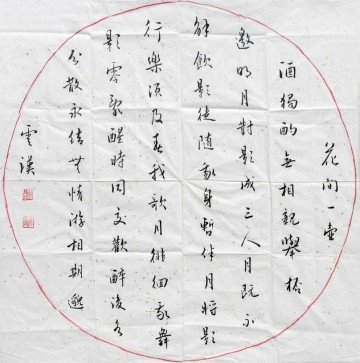 花間一壺
酒獨酌無相親舉杯
邀明月對影成三人月既不
解飲影徒隨我身暫伴月將影
行樂須及春我歌月徘徊我舞
影零亂醒時同交歡醉後各
分散永結無情游相期邈
雲漢